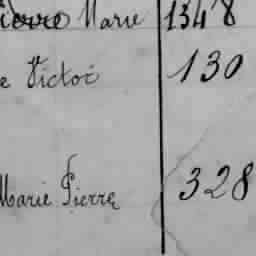 Pierre Marie 1348
e Victor 130
Marie Pierre 328